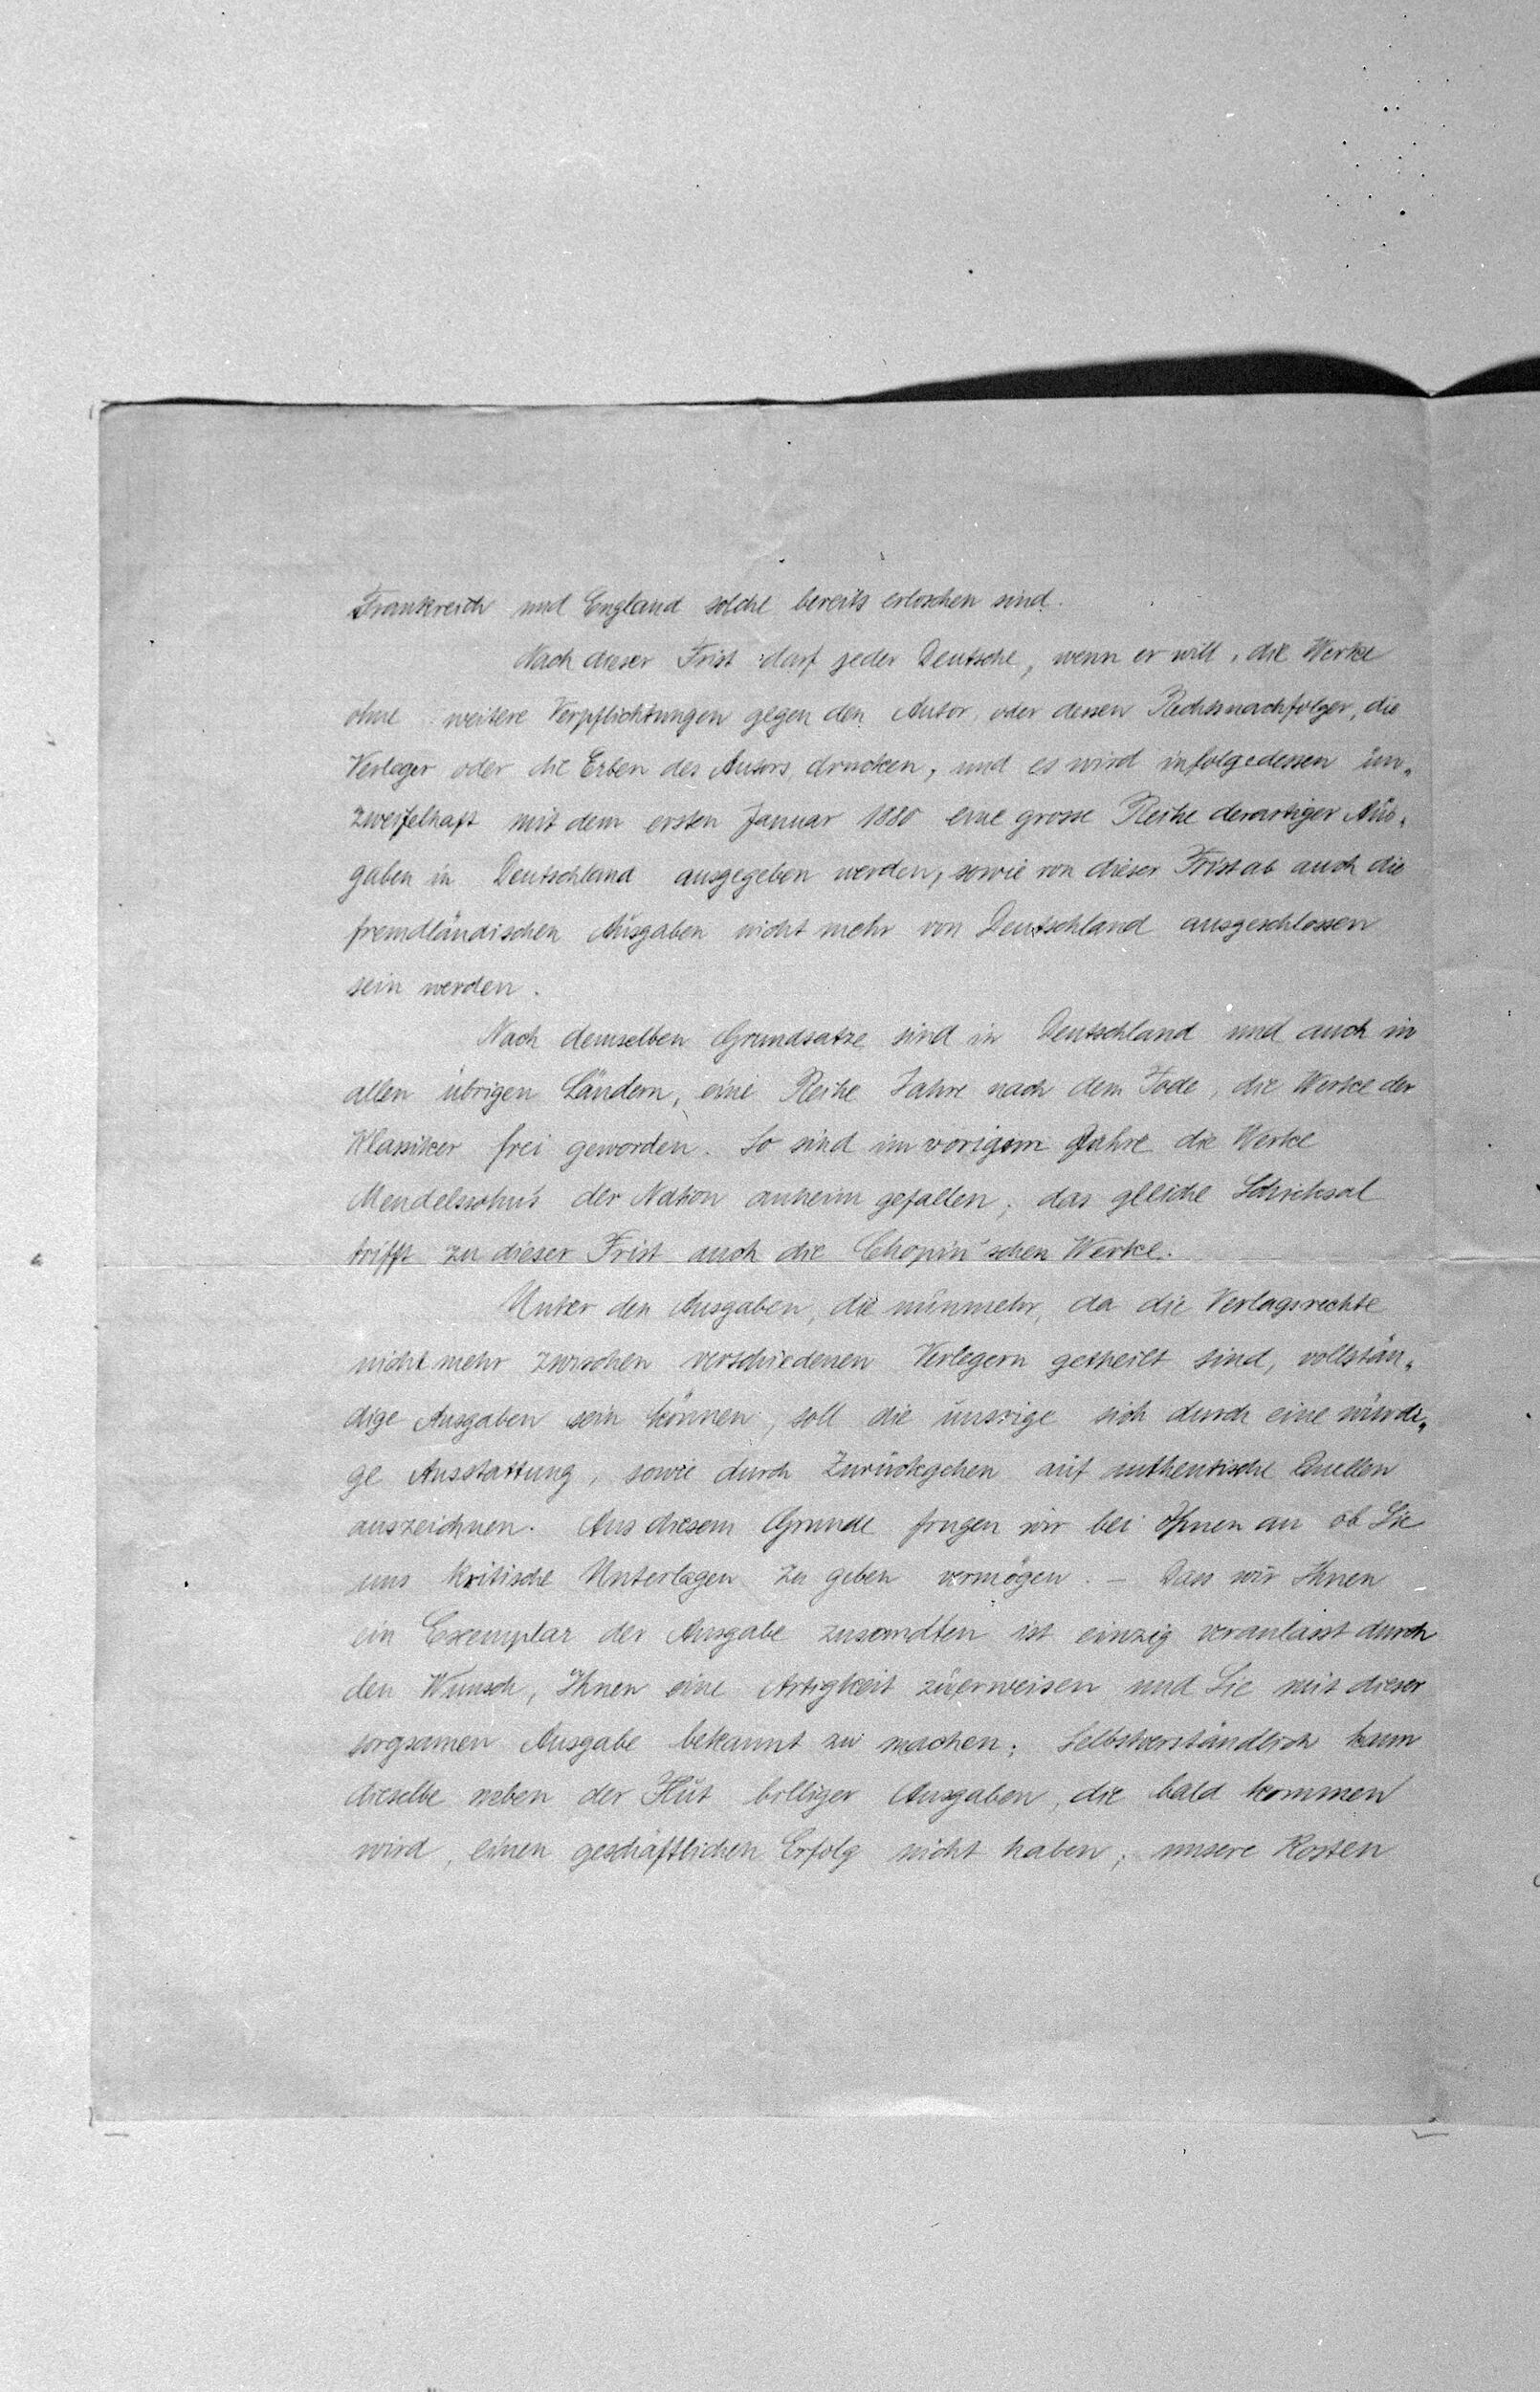 Frankreich und England solche bereits erloschen sind.
Nach dieser Frist darf jeder Deutsche, wenn er will, die Werke
ohne weitere Verpflichtungen gegen den Autor, oder dessen Rechtsnachfolger, die
Verleger oder die Erben des Autors, drucken, und es wird infolgedessen un„
zweifelhaft mit dem ersten Januar 1880 eine grosse Reihe derartiger Aus„
gaben in Deutschland ausgegeben werden, sowie von dieser Frist ab auch die
fremdländischen Ausgaben nicht mehr von Deutschland ausgeschlossen
sein werden.
Nach demselben Grundsatze sind in Deutschland und auch in
allen übrigen Ländern, eine Reihe Jahre nach dem Tode, die Werke der
Klassiker frei geworden. So sind im vorigem Jahre die Werke
Mendelssohn's der Nation anheim gefallen; das gleiche Schicksal
trifft zu dieser Frist auch die Chopin'schen Werke.
Unter den Ausgaben, die nunmehr, da die Verlagsrechte
nicht mehr zwischen verschiedenen Verlegern getheilt sind, vollstän„
dige Ausgaben sein können, soll die unsrige sich durch eine würdi„
ge Ausstattung, sowie durch Zurückgehen auf authentische Quellen
auszeichnen. Aus diesem Grunde frugen wir bei Ihnen an ob Sie
uns kritische Unterlagen zu geben vermögen. – Dass wir Ihnen
ein Exemplar der Ausgabe zusandten ist einzig veranlasst durch
den Wunsch, Ihnen eine Artigkeit zu erweisen und Sie mit dieser
sorgsamen Ausgabe bekannt zu machen; Selbstverständlich kann
dieselbe neben der Flut billiger Ausgaben, die bald kommen
wird, einen geschäftlichen Erfolg nicht haben; unsere Kosten